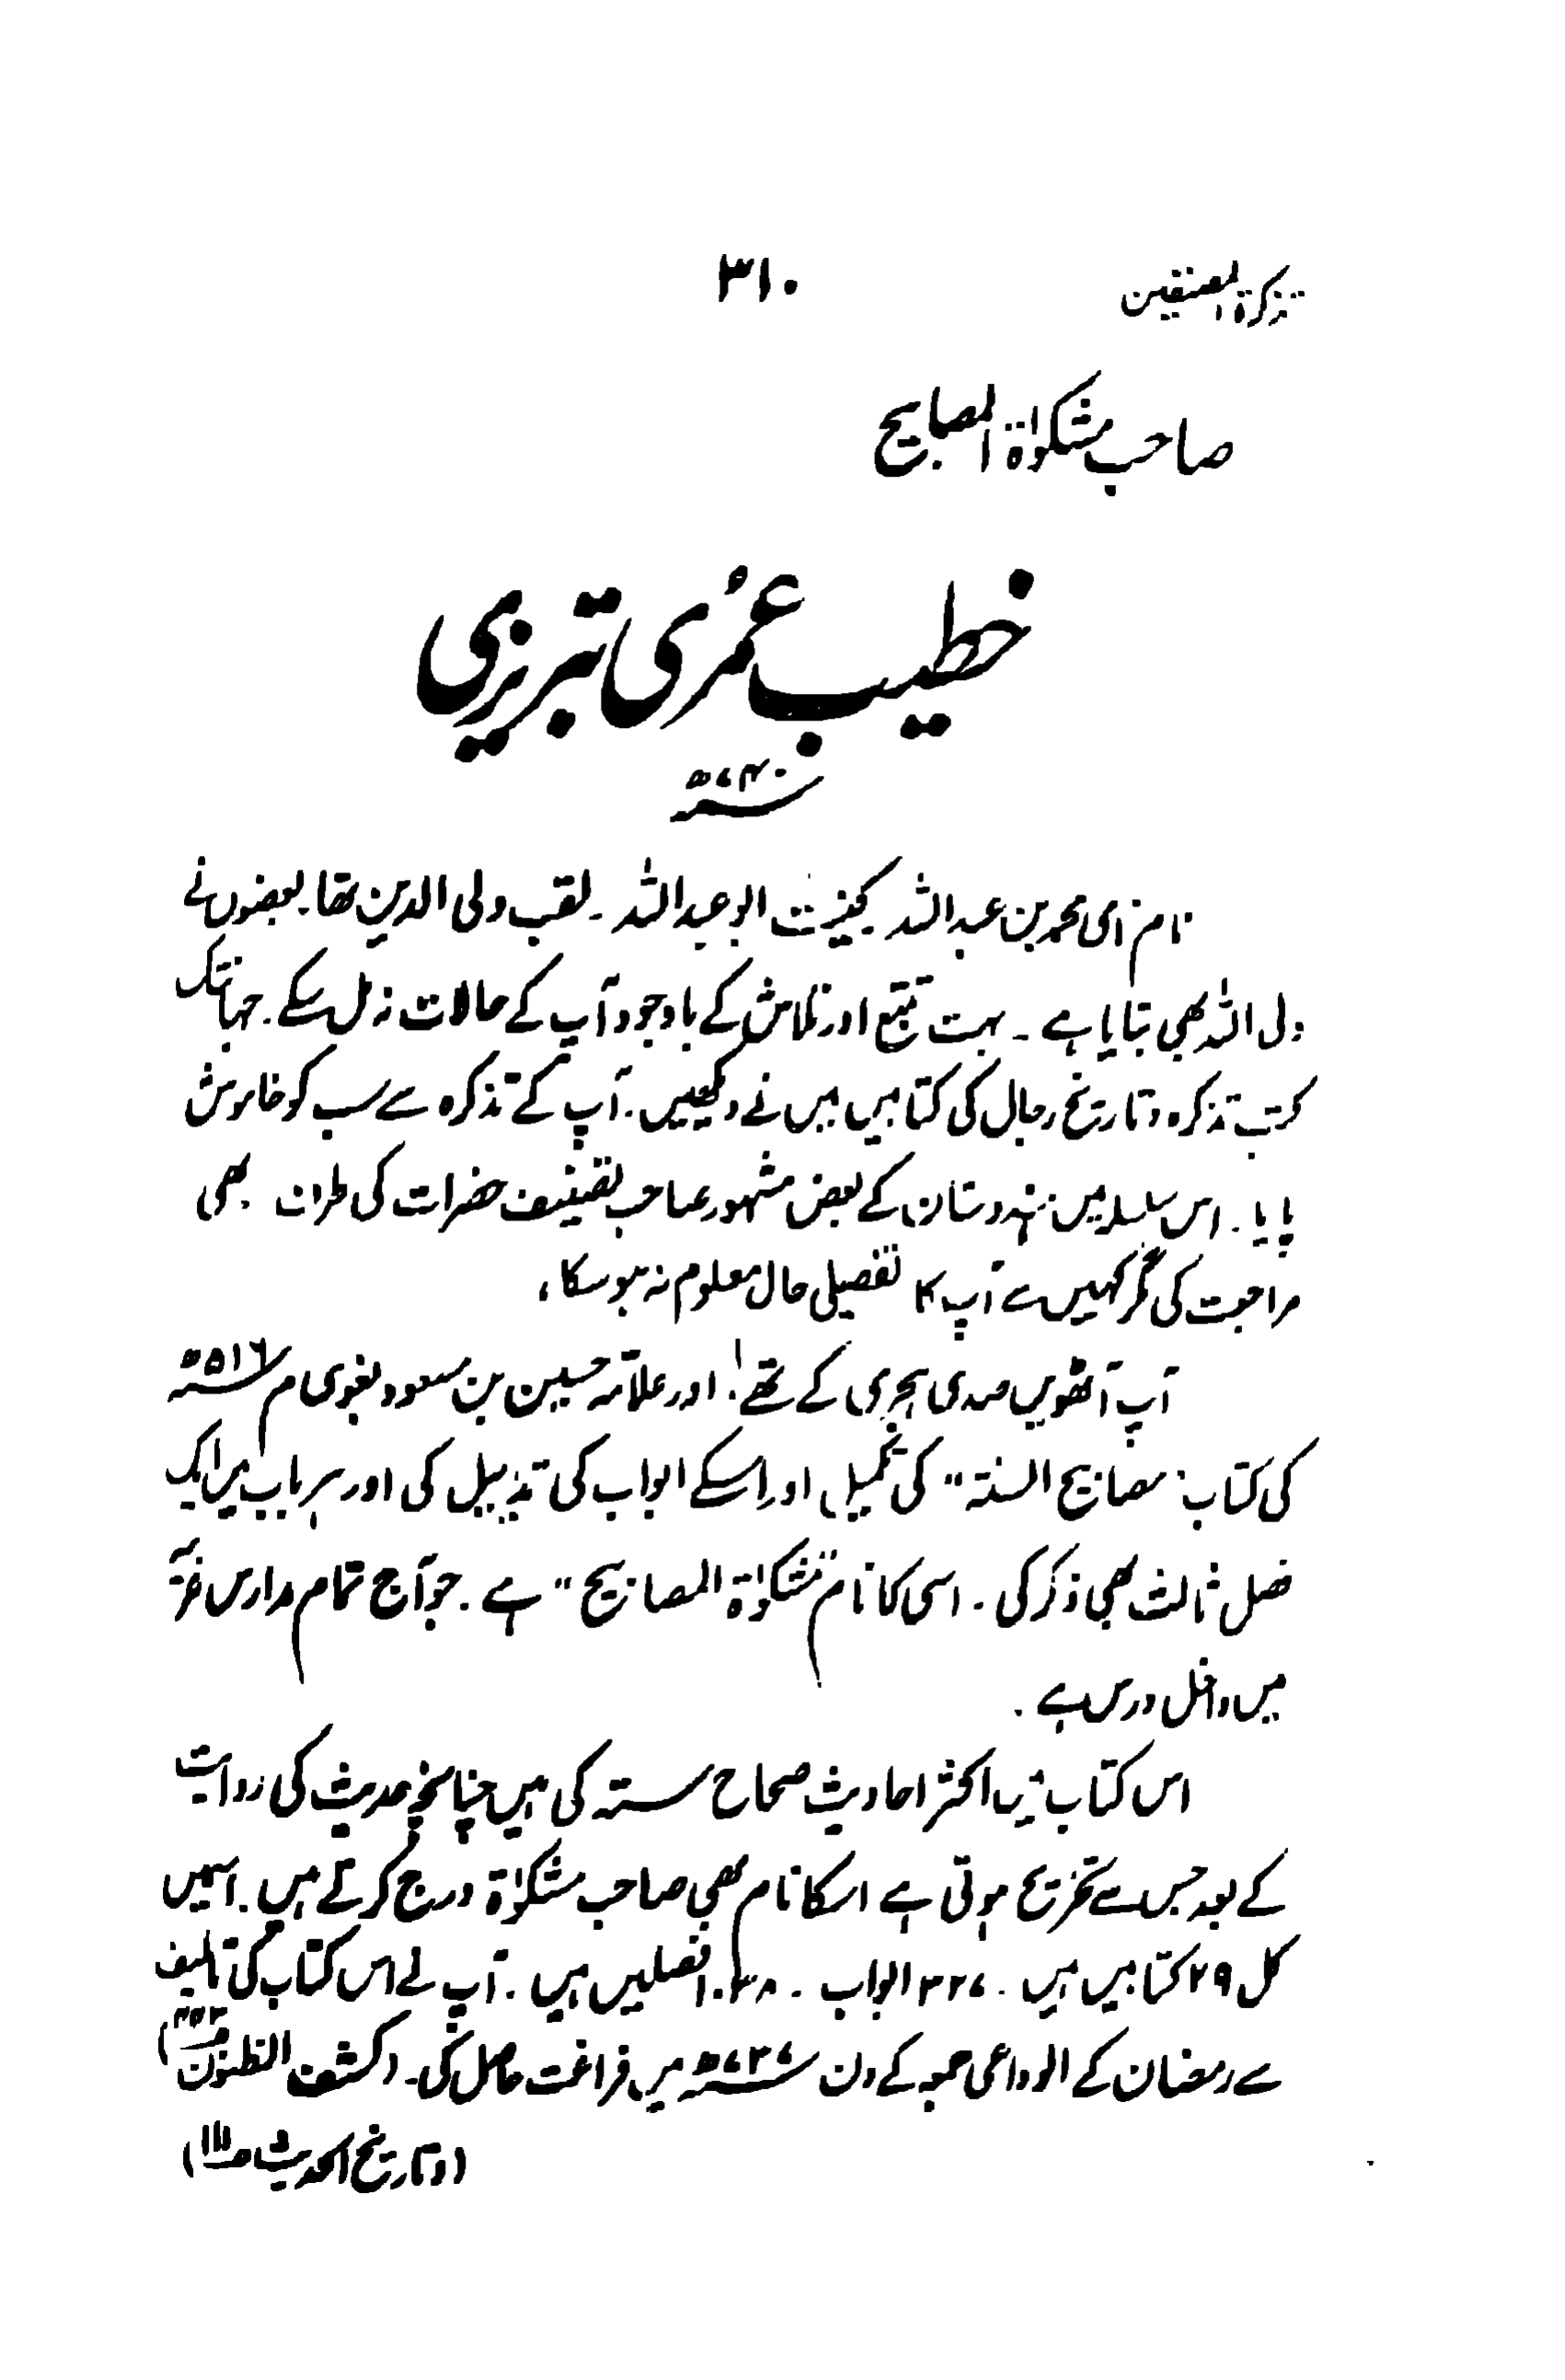 تذکرۃ المصنفین ۳۱۰
صاحب مشکوٰۃ المصابیح
خطیب عمری تبریزی
۷۴۰ھ
نام نامی محمد بن عبداللہ ۔ کنیت ابو عبداللہ ۔ لقب ولی الدین تھا۔ بعضوں نے
ولی اللہ بھی بتایا ہے ۔ بہت تتبع اور تلاش کے باوجود آپ کے حالات نہ مل سکے ۔ جہانتک
کتب تذکرہ و تاریخ رجال کی کتابیں میں نے دیکھیں ۔ آپ کے تذکرہ سے سب کو خاموش
پایا ۔ اس سلسلہ میں ہندوستان کے بعض مشہور صاحب تصنیف حضرات کی طرف بھی
مراجعت کی مگر کہیں سے آپ کا تفصیلی حال معلوم نہ ہو سکا ،
آپ آٹھویں صدی ہجری کے تھے ۔ اور علامہ حسین بن مسعود بغوی م ۵۱۶ھ
کی کتاب "مصابیح السنۃ" کی تکمیل اور اسکے ابواب کی تذییل کی اور ہر باب میں ایک
فصل ثالث بھی ذکر کی ۔ اسی کا نام "مشکوٰۃ المصابیح" ہے ۔ جو آج تمام مدارس عربیہ
میں داخل درس ہے ۔
اس کتاب میں اکثر احادیث صحاح ستہ کی ہیں چنانچہ حدیث کی روایت
کے بعد جس سے تخریج ہوتی ہے اسکا نام بھی صاحب مشکوٰۃ درج کرتے ہیں ۔ اسمیں
کل ۲۹ کتابیں ہیں ۔ ۳۲۷ ابواب ۔ ۱۰۳۸ فصلیں ہیں ۔ آپ نے اس کتاب کی تالیف
سے رمضان کے الوداعی جمعہ کے دن ۷۳۷ھ میں فراغت حاصل کی ۔ (کشف الظنون )
(و تاریخ الحدیث ص۱۱۱)